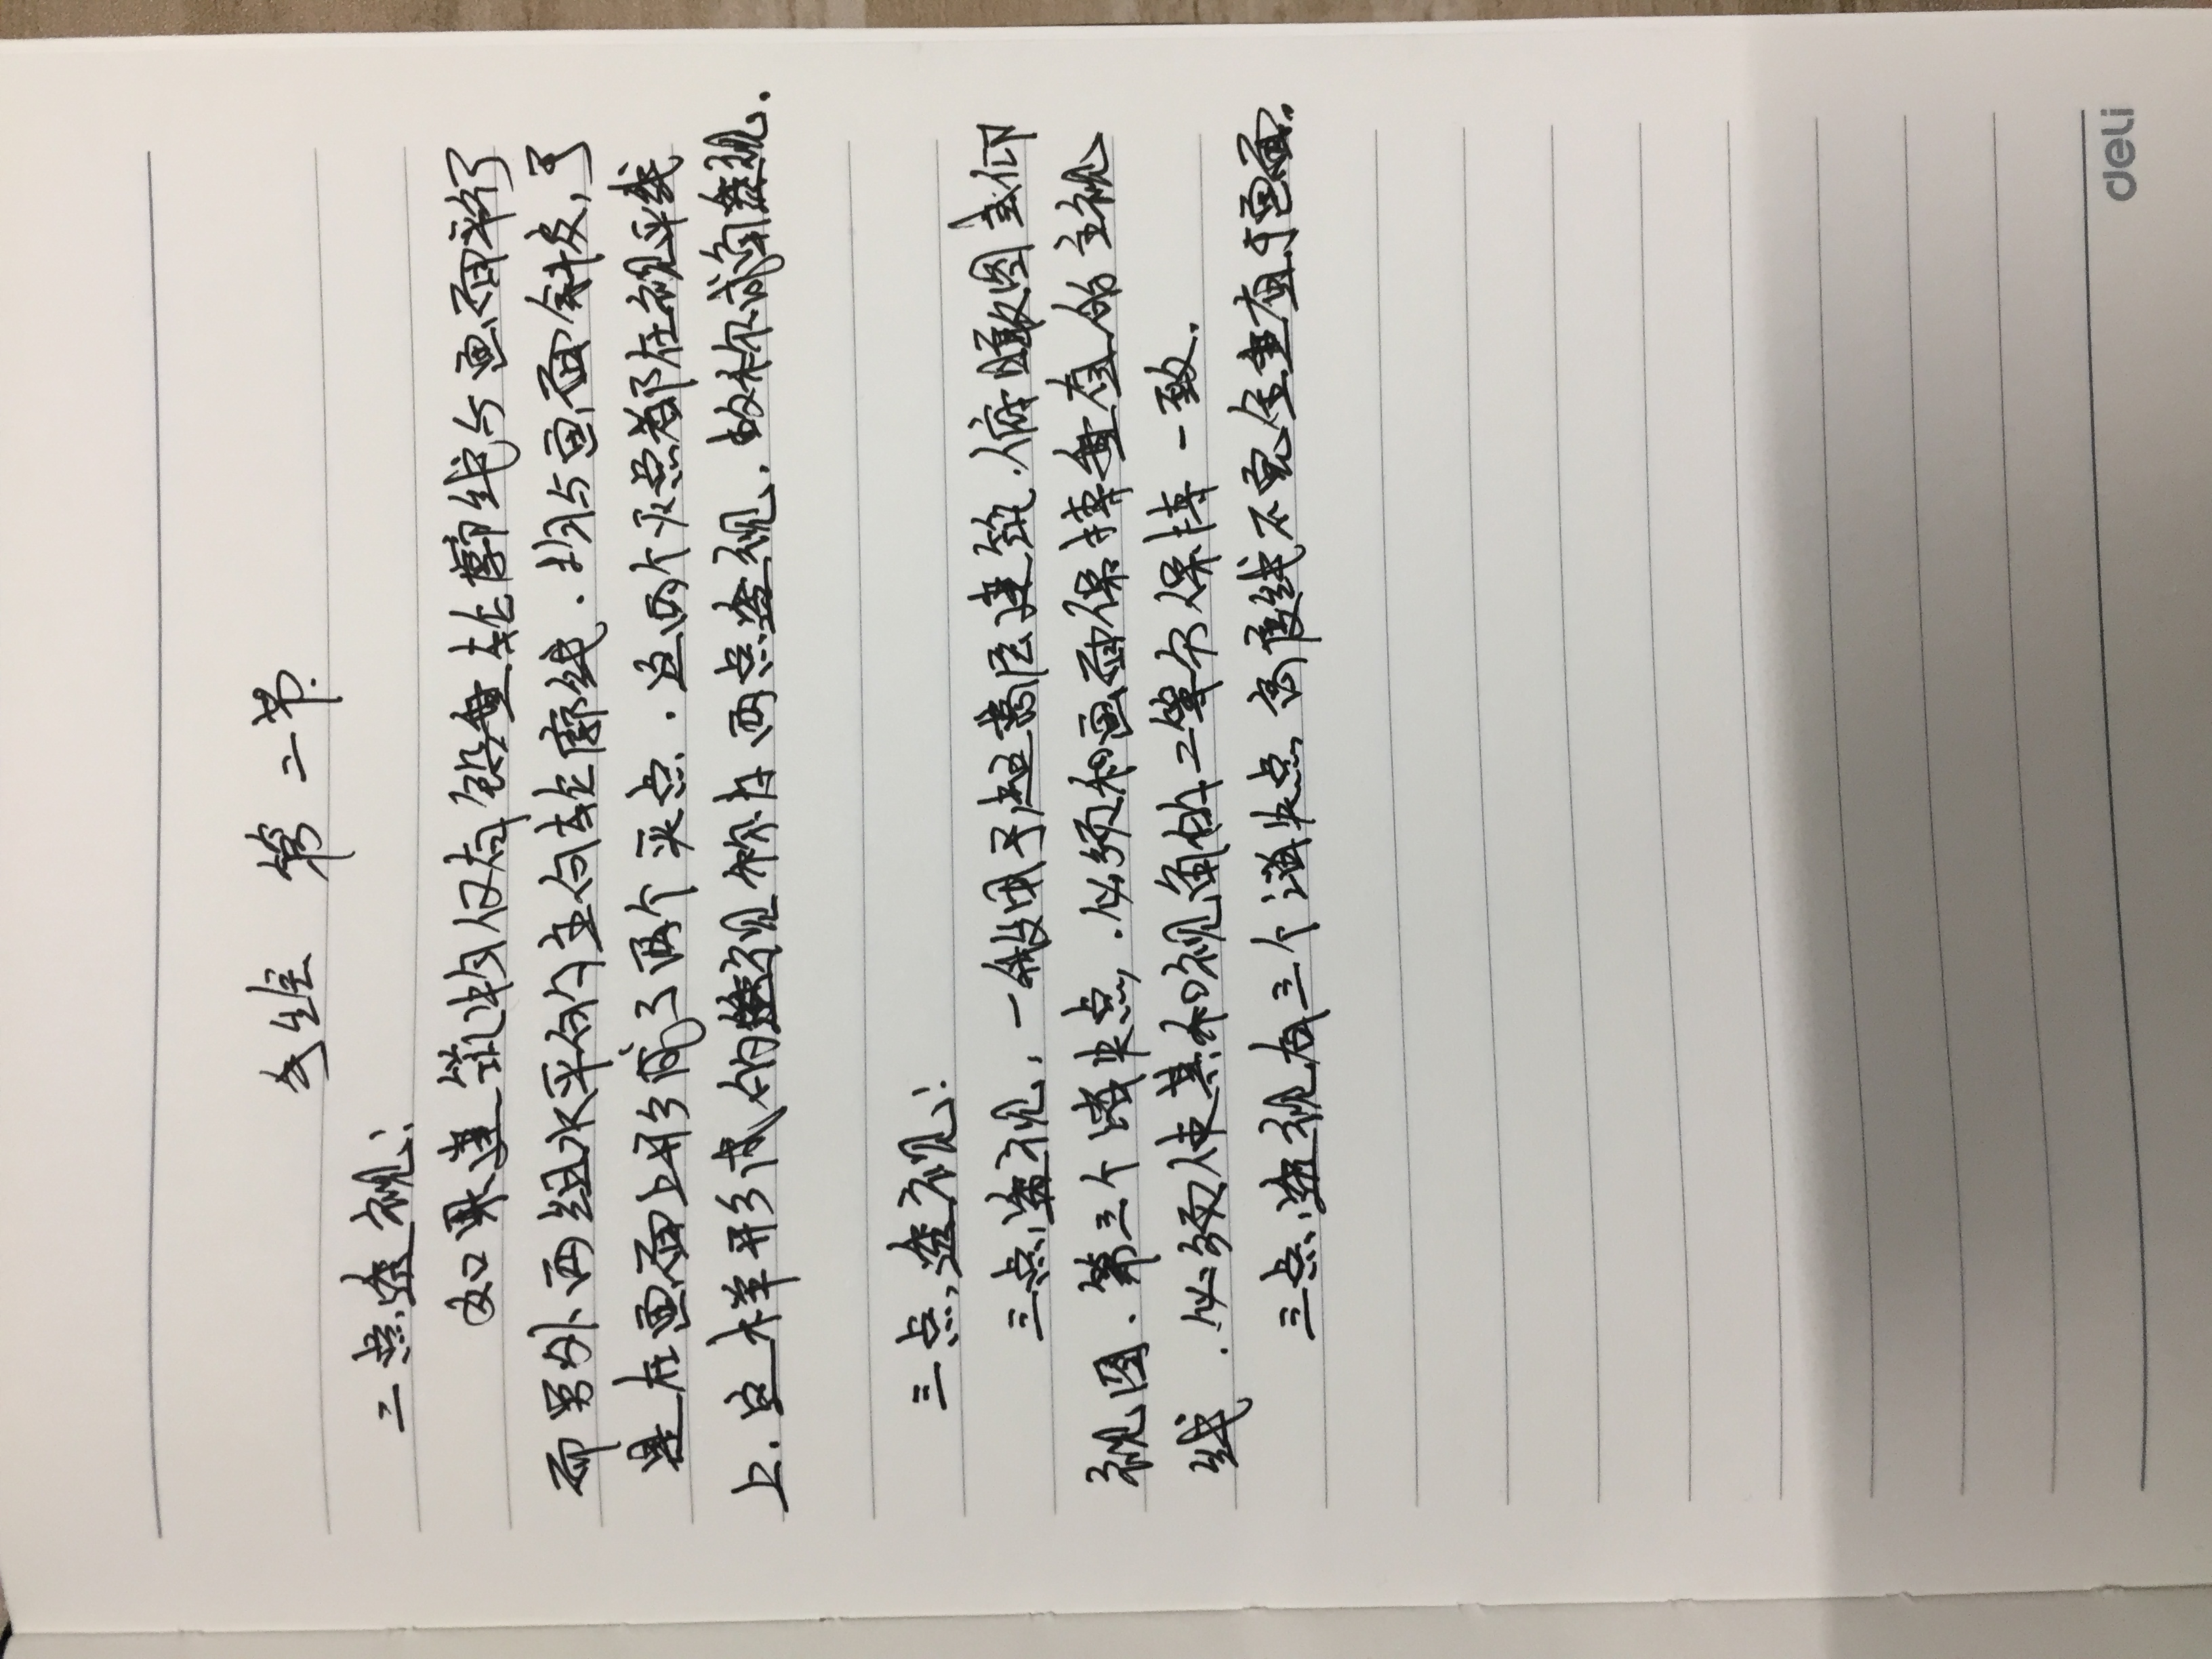 手绘 第二节.
二点透视：
如果建筑物仅有铅垂轮廓线与画面平行
而另外两组水平的主向轮廓线.均与画面斜交,于
是在画面上形成了两个灭点.这两个灭点都在视平线
上.这样形成的透视称为两点透视.故称成角透视.
三点透视：
三点透视,一般用于超高层建筑.俯瞰图或仰
视图.第三个消失点,.必须和画面保持垂直的主视
线.必须使其和视角的二等分保持一致.
三点透视有三个消失点 高度线不完全垂直于画面.
deli